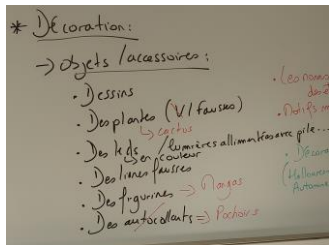 * Décoration:
-> Objets / accessoires :
• Dessins
• Des plantes (V / fausses)
↳ cactus
• Des leds / lumières allimentées avec pile...
↳ en couleur
• Des lianes fausses
• Des figurines => Mangas
• Des autocollants => Pochoirs
• Les
• Motifs
• Décora
(Halloween
Automne